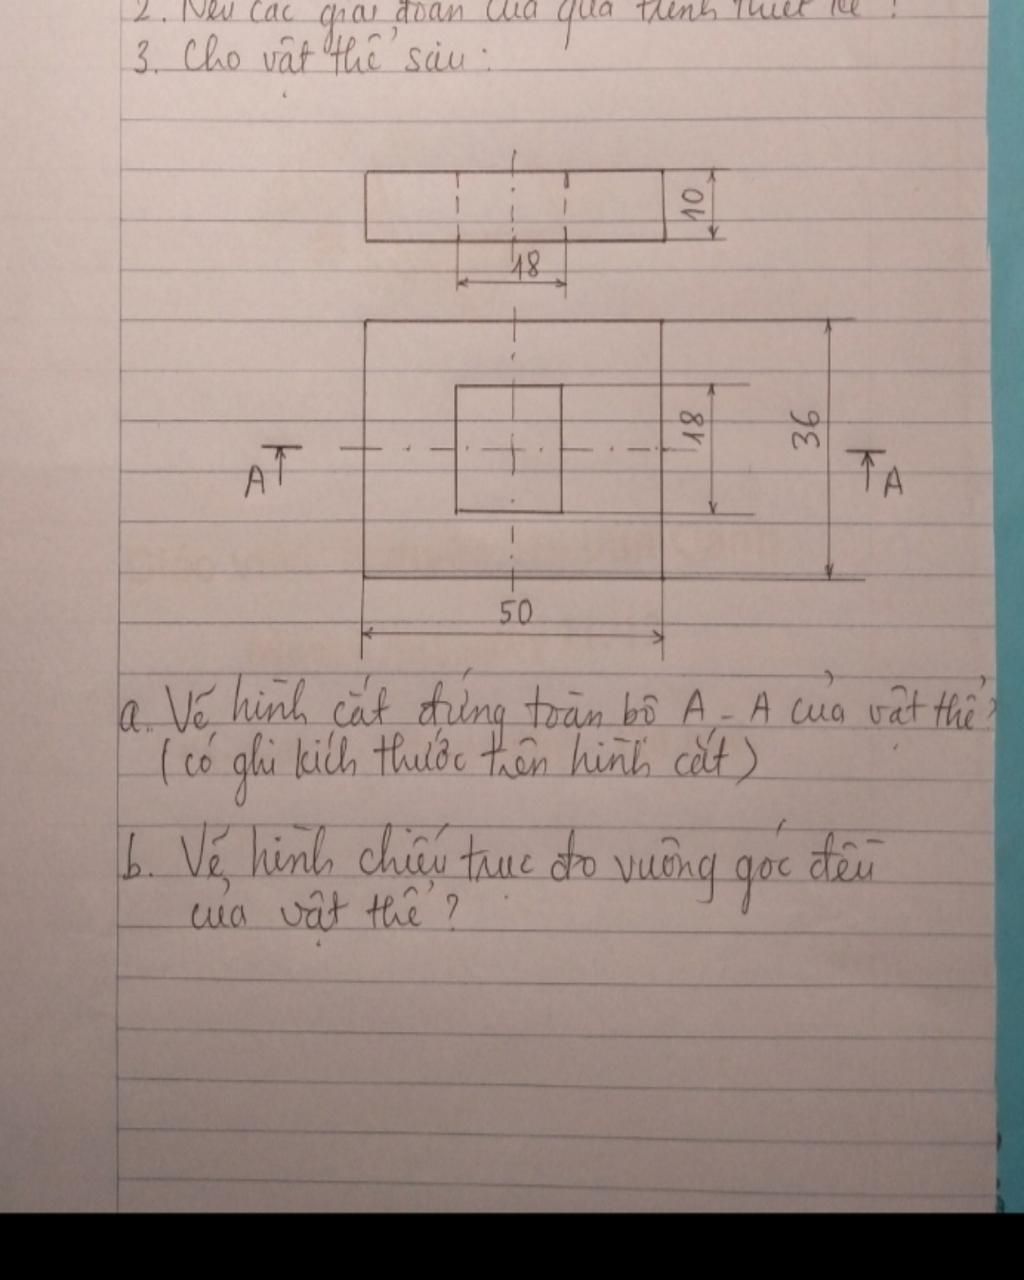 2. Nêu các giai đoạn của quá trình thiết kế ?
3. Cho vật thể sau :
10
18
18
36
A
A
50
a. Vẽ hình cắt đứng toàn bộ A - A của vật thể ?
( có ghi kích thước trên hình cắt )
b. Vẽ hình chiếu trục đo vuông góc đều
của vật thể ?